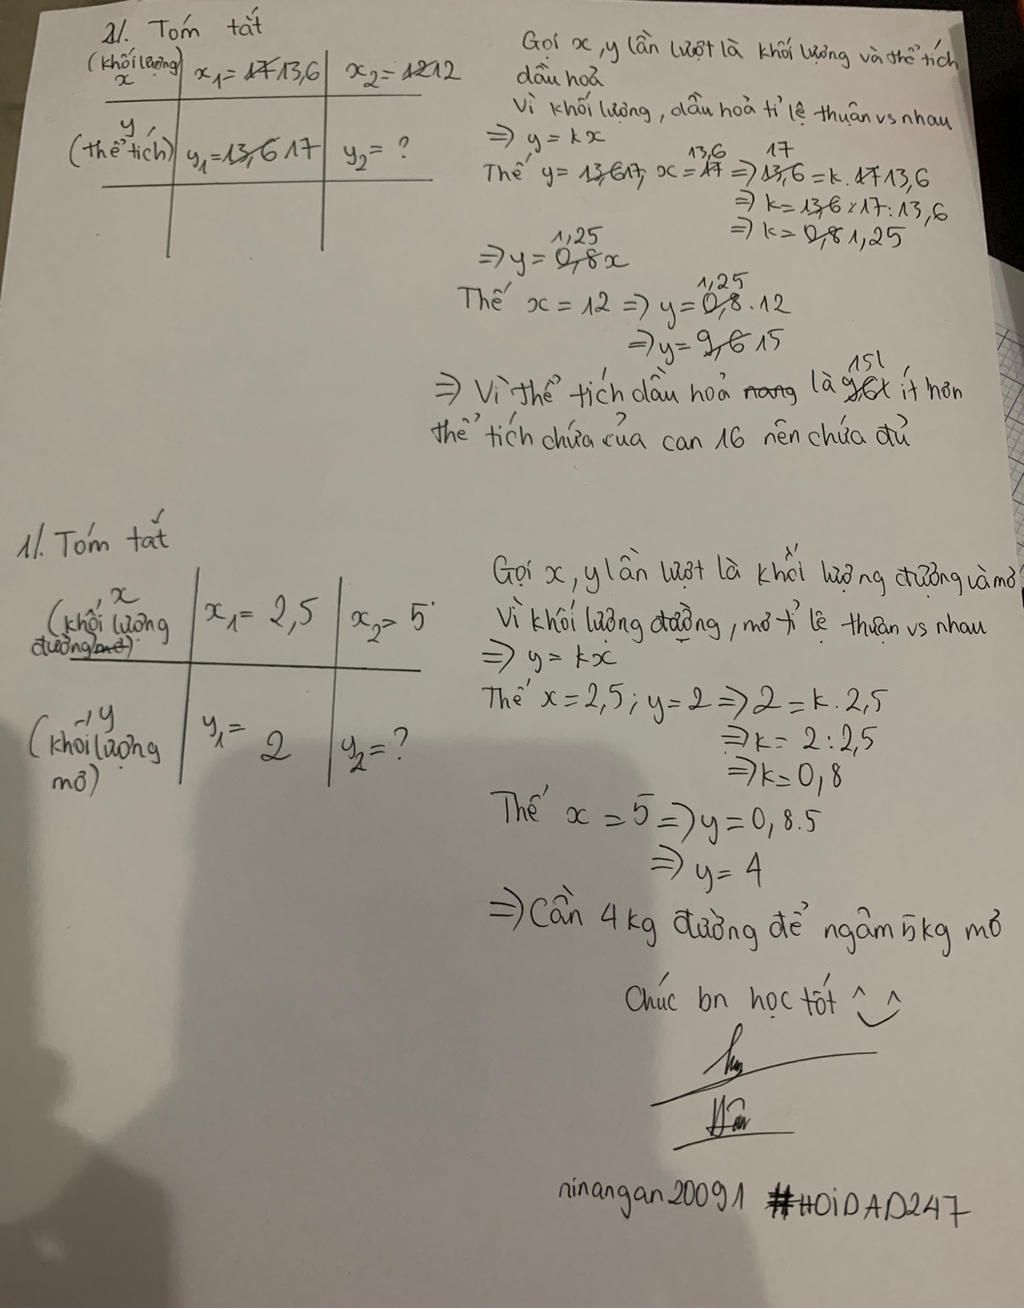 2/. Tóm tắt
(khối lượng) x | x₁ = 17 13,6 | x₂ = 12 12
y (thể tích) | y₁ = 13,6 17 | y₂ = ?
Gọi x, y lần lượt là khối lượng và thể tích
dầu hoả
Vì khối lượng, dầu hoả tỉ lệ thuận vs nhau
=> y = kx
Thế y = 13,6 17; x = 17 13,6 => 13,6 17 = k. 17 13,6
=> k = 13,6 : 17 : 13,6
=> k = 0,8 1,25
=> y = 0,8 1,25 x
Thế x = 12 => y = 0,8 1,25 . 12
=> y = 9,6 15
=> Vì thể tích dầu hoả nang là 9,6l 15l ít hơn
thể tích chứa của can 16 nên chứa đủ
1/. Tóm tắt
x (khối lượng đường mơ) | x₁ = 2,5 | x₂ = 5
y (khối lượng mơ) | y₁ = 2 | y₂ = ?
Gọi x, y lần lượt là khối lượng đường và mơ
Vì khối lượng đường, mơ tỉ lệ thuận vs nhau
=> y = kx
Thế x = 2,5; y = 2 => 2 = k. 2,5
=> k = 2 : 2,5
=> k = 0,8
Thế x = 5 => y = 0,8.5
=> y = 4
=> Cần 4 kg đường để ngâm 5kg mơ
Chúc bn học tốt ^‿^
Hân
ninangan20091 #HOIDAD247